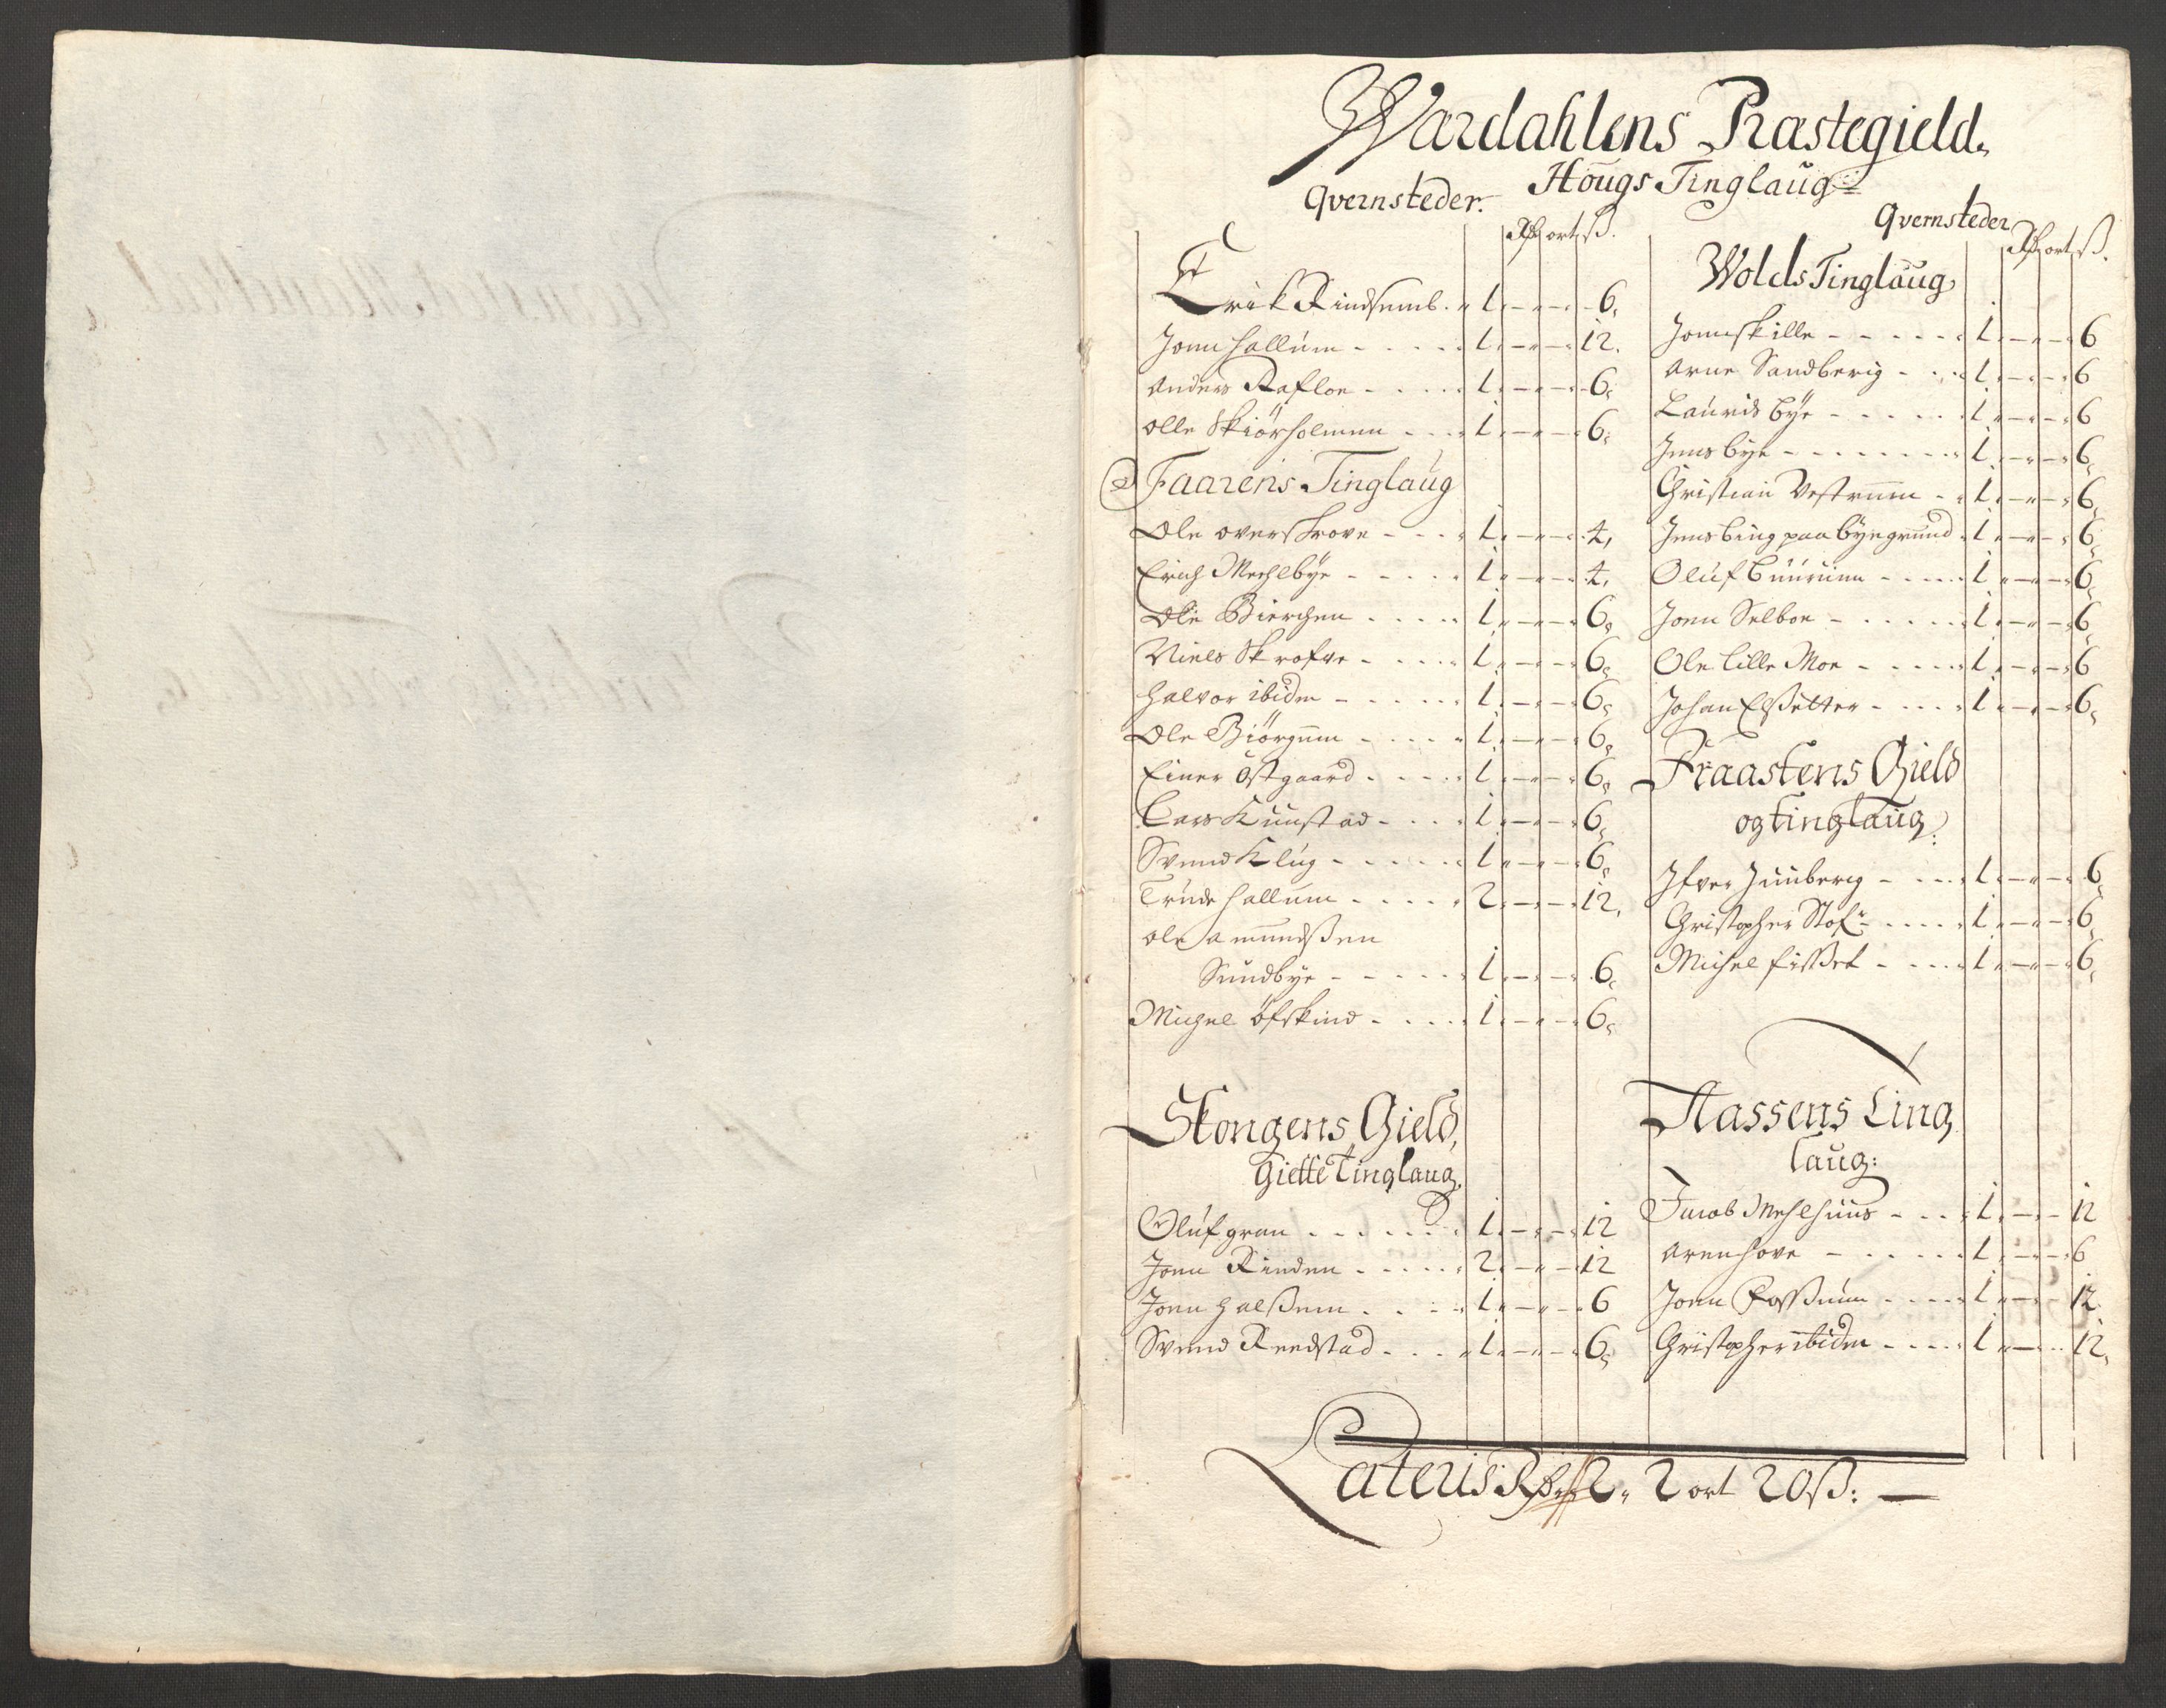 Wardahlens Præstegield.
Hougs Tinglaug
Qvernsteder.
Rdr ort ß.
Erik Rindsemb. 1 - - 6,
Jonn Hallum - - - 1 - - 12.
Anders Rafloe - - - 1 - - 6,
Olle Skiørholmen - - - 1 - - 6,
Faarens Tinglaug
Ole overskrove - - - 1 - - 4,
Erich Mechlbye - - - 1 - - 4,
Ole Bierchen - - - 1 - - 6,
Niels Skrofve - - - 1 - - 6,
Halvor ibidem - - - 1 - - 6,
Ole Biørgum - - - 1 - - 6,
Einer Østgaard - - - 1 - - 6,
Lars Kunstad - - - 1 - - 6,
Svend Klug - - - 1 - - 6,
Trude Hallum - - - 2 - - 12,
Ole Amundßen
Sundbye - - - 1 - - 6,
Michel Øfskind - - - 1 - - 6,
Skongens Gield,
Giette Tinglaug.
Oluf gran - - - 1 - - 12
Jonn Rinden - - - 2 - - 12
Jonn Halßem - - - 1 - - 6
Svend Reedstad - - - 1 - - 6,
Qvernsteder
Rdr ort ß.
Wolds Tinglaug
Jonn skille - - - 1 - - 6
Arne Sandberig - - - 1 - - 6
Laurids bye - - - 1 - - 6
Jens bye - - - 1 - - 6,
Christian Vestrum - - 1 - - 6,
Jens bing paa byegrund 1 - - 6,
Oluf Buurum - - - 1 - - 6,
Jonn Selboe - - - 1 - - 6,
Ole lille Moe - - - 1 - - 6
Johan Elßetter - - - 1 - - 6,
Fraastens Gield
og tinglaug:
Ifver Juuberg - - - 1 - - 6,
Christopher Stof - - - 1 - - 6,
Michel fisßet - - - 1 - - 6,
Stassens Ting
laug:
Jacob Mehlhuus - - - 1 - - 12
Aren hove - - - 1 - - 6
Jonn Fosßnum - - - 1 - - 12
Christopher ibidem - - - 1 - - 12,
Lateris Rdr 2 ort 20 ß: —